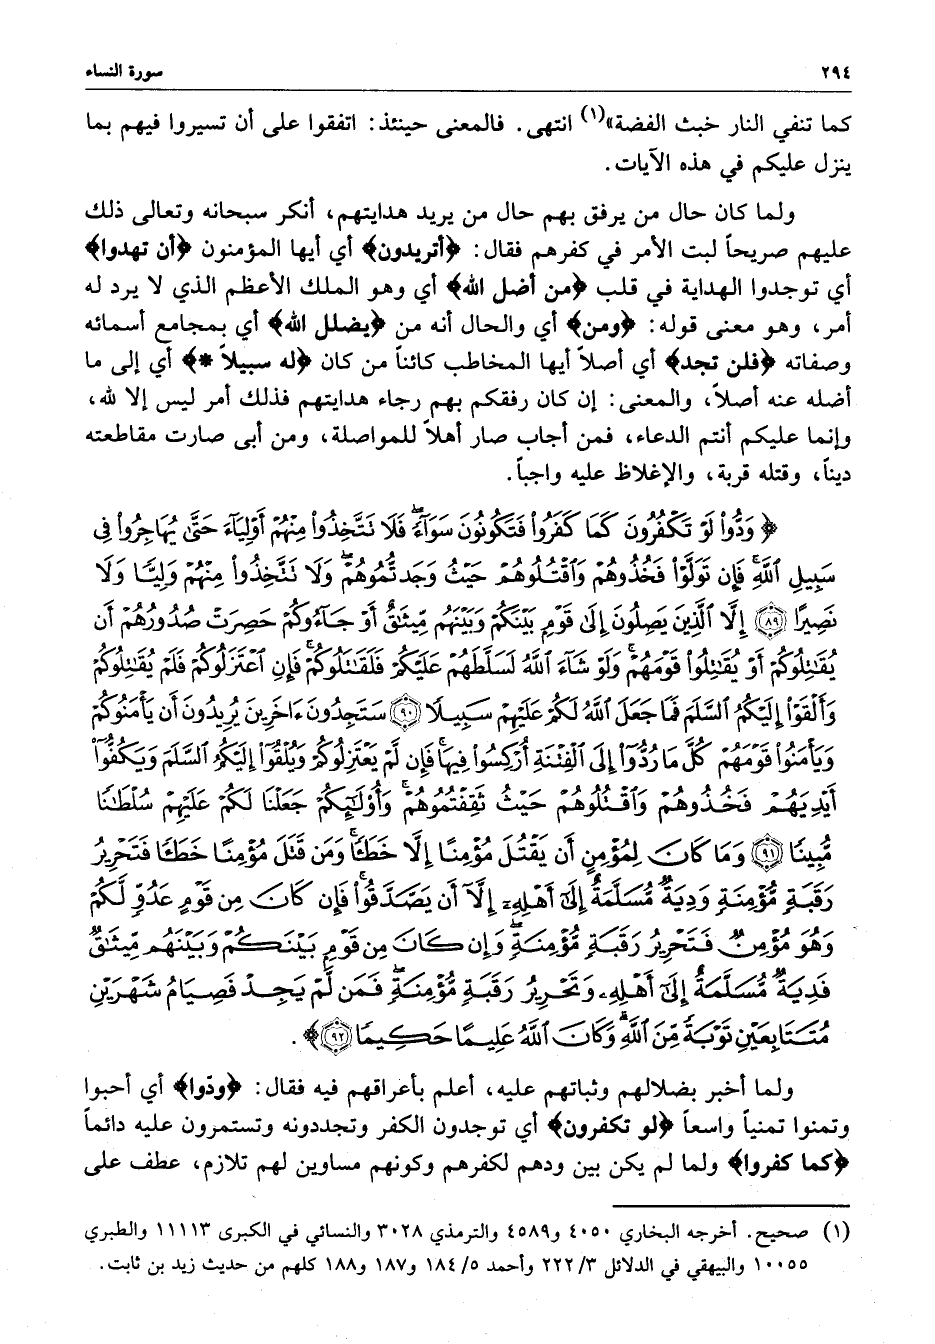 ٢٩٤ سورة النساء
كما تنفي النار خبث الفضة»(١) انتهى. فالمعنى حينئذ: اتفقوا على أن تسيروا فيهم بما
ينزل عليكم في هذه الآيات.
ولما كان حال من يرفق بهم حال من يريد هدايتهم، أنكر سبحانه وتعالى ذلك
عليهم صريحاً لبت الأمر في كفرهم فقال: ﴿أتريدون﴾ أي أيها المؤمنون ﴿أن تهدوا﴾
أي توجدوا الهداية في قلب ﴿من أضل الله﴾ أي وهو الملك الأعظم الذي لا يرد له
أمر، وهو معنى قوله: ﴿ومن﴾ أي والحال أنه من ﴿يضلل الله﴾ أي بمجامع أسمائه
وصفاته ﴿فلن تجد﴾ أي أصلاً أيها المخاطب كائناً من كان ﴿له سبيلاً *﴾ أي إلى ما
أضله عنه أصلاً، والمعنى: إن كان رفقكم بهم رجاء هدايتهم فذلك أمر ليس إلا لله،
وإنما عليكم أنتم الدعاء، فمن أجاب صار أهلاً للمواصلة، ومن أبى صارت مقاطعته
ديناً، وقتله قربة، والإغلاظ عليه واجباً.
﴿ وَدُّوا۟ لَوْ تَكْفُرُونَ كَمَا كَفَرُوا۟ فَتَكُونُونَ سَوَآءً ۖ فَلَا تَتَّخِذُوا۟ مِنْهُمْ أَوْلِيَآءَ حَتَّىٰ يُهَاجِرُوا۟ فِى
سَبِيلِ ٱللَّهِ ۚ فَإِن تَوَلَّوْا۟ فَخُذُوهُمْ وَٱقْتُلُوهُمْ حَيْثُ وَجَدتُّمُوهُمْ ۖ وَلَا تَتَّخِذُوا۟ مِنْهُمْ وَلِيًّا وَلَا
نَصِيرًا ﴿٨٩﴾ إِلَّا ٱلَّذِينَ يَصِلُونَ إِلَىٰ قَوْمٍۭ بَيْنَكُمْ وَبَيْنَهُم مِّيثَـٰقٌ أَوْ جَآءُوكُمْ حَصِرَتْ صُدُورُهُمْ أَن
يُقَـٰتِلُوكُمْ أَوْ يُقَـٰتِلُوا۟ قَوْمَهُمْ ۚ وَلَوْ شَآءَ ٱللَّهُ لَسَلَّطَهُمْ عَلَيْكُمْ فَلَقَـٰتَلُوكُمْ ۚ فَإِنِ ٱعْتَزَلُوكُمْ فَلَمْ يُقَـٰتِلُوكُمْ
وَأَلْقَوْا۟ إِلَيْكُمُ ٱلسَّلَمَ فَمَا جَعَلَ ٱللَّهُ لَكُمْ عَلَيْهِمْ سَبِيلًا ﴿٩٠﴾ سَتَجِدُونَ ءَاخَرِينَ يُرِيدُونَ أَن يَأْمَنُوكُمْ
وَيَأْمَنُوا۟ قَوْمَهُمْ كُلَّ مَا رُدُّوٓا۟ إِلَى ٱلْفِتْنَةِ أُرْكِسُوا۟ فِيهَا ۚ فَإِن لَّمْ يَعْتَزِلُوكُمْ وَيُلْقُوٓا۟ إِلَيْكُمُ ٱلسَّلَمَ وَيَكُفُّوٓا۟
أَيْدِيَهُمْ فَخُذُوهُمْ وَٱقْتُلُوهُمْ حَيْثُ ثَقِفْتُمُوهُمْ ۚ وَأُو۟لَـٰٓئِكُمْ جَعَلْنَا لَكُمْ عَلَيْهِمْ سُلْطَـٰنًا
مُّبِينًا ﴿٩١﴾ وَمَا كَانَ لِمُؤْمِنٍ أَن يَقْتُلَ مُؤْمِنًا إِلَّا خَطَـًٔا ۚ وَمَن قَتَلَ مُؤْمِنًا خَطَـًٔا فَتَحْرِيرُ
رَقَبَةٍ مُّؤْمِنَةٍ وَدِيَةٌ مُّسَلَّمَةٌ إِلَىٰٓ أَهْلِهِۦٓ إِلَّآ أَن يَصَّدَّقُوا۟ ۚ فَإِن كَانَ مِن قَوْمٍ عَدُوٍّ لَّكُمْ
وَهُوَ مُؤْمِنٌ فَتَحْرِيرُ رَقَبَةٍ مُّؤْمِنَةٍ ۖ وَإِن كَانَ مِن قَوْمٍۭ بَيْنَكُمْ وَبَيْنَهُم مِّيثَـٰقٌ
فَدِيَةٌ مُّسَلَّمَةٌ إِلَىٰٓ أَهْلِهِۦ وَتَحْرِيرُ رَقَبَةٍ مُّؤْمِنَةٍ ۖ فَمَن لَّمْ يَجِدْ فَصِيَامُ شَهْرَيْنِ
مُتَتَابِعَيْنِ تَوْبَةً مِّنَ ٱللَّهِ ۗ وَكَانَ ٱللَّهُ عَلِيمًا حَكِيمًا ﴿٩٢﴾ ﴾.
ولما أخبر بضلالهم وثباتهم عليه، أعلم بأعراقهم فيه فقال: ﴿ودّوا﴾ أي أحبوا
وتمنوا تمنياً واسعاً ﴿لو تكفرون﴾ أي توجدون الكفر وتجددونه وتستمرون عليه دائماً
﴿كما كفروا﴾ ولما لم يكن بين ودهم لكفرهم وكونهم مساوين لهم تلازم، عطف على
(١) صحيح. أخرجه البخاري ٤٠٥٠ و٤٥٨٩ والترمذي ٣٠٢٨ والنسائي في الكبرى ١١١١٣ والطبري
١٠٠٥٥ والبيهقي في الدلائل ٣/ ٢٢٢ وأحمد ٥/ ١٨٤ و١٨٧ و١٨٨ كلهم من حديث زيد بن ثابت.